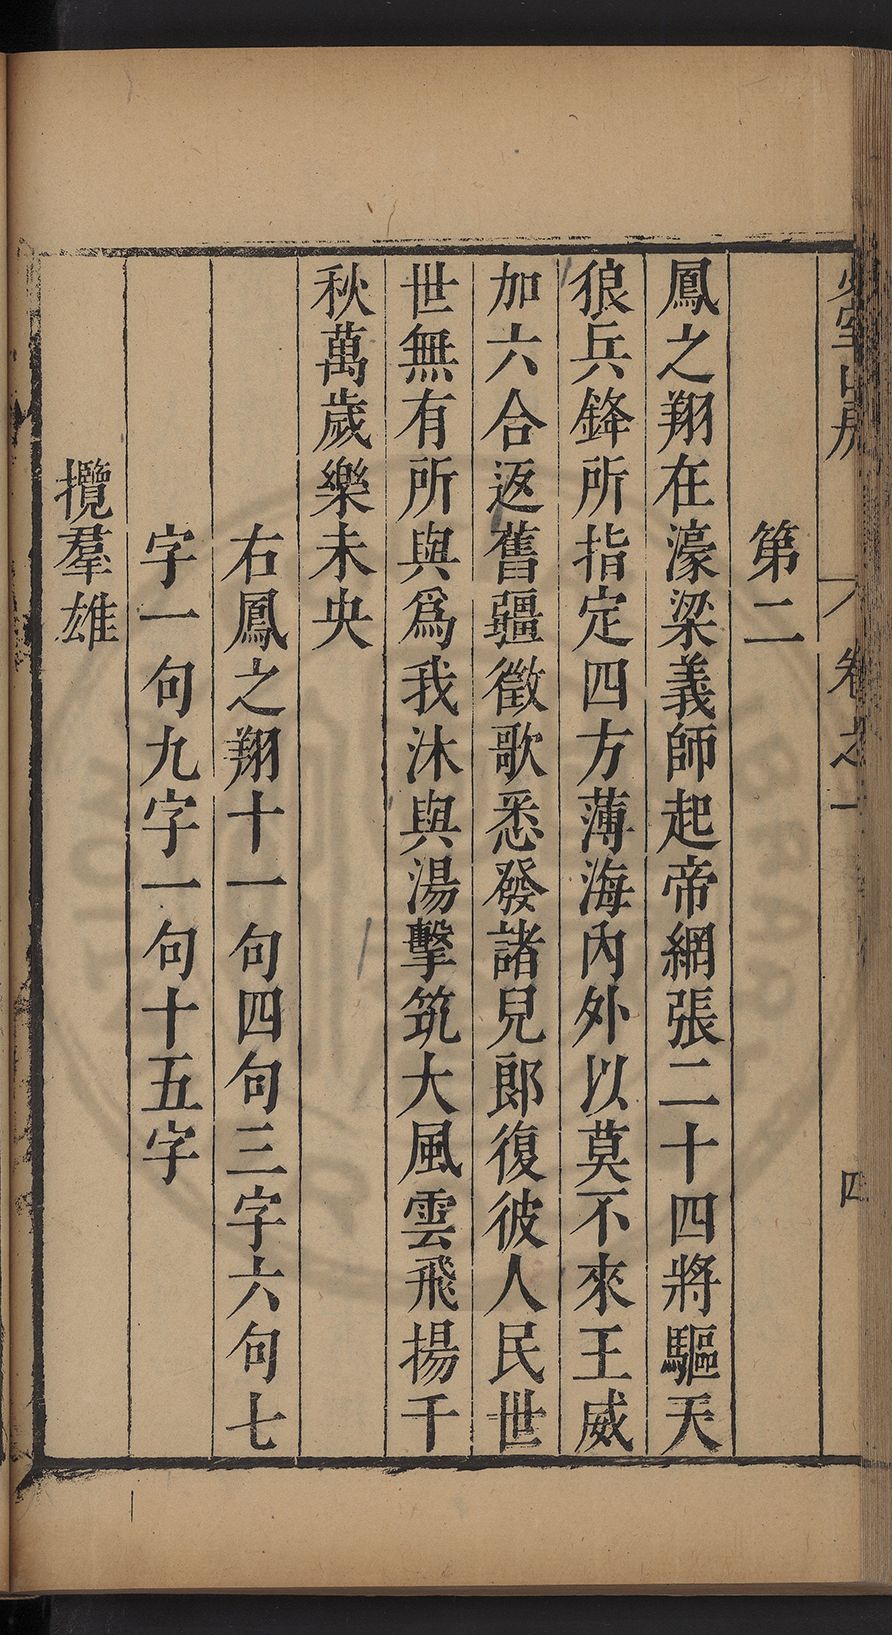 卷之一 四
第二
鳳之翔在濠梁義師起帝網張二十四將驅天
狼兵鋒所指定四方薄海內外以莫不來王威
加六合返舊疆徵歌悉發諸兒郎復彼人民世
世無有所與爲我沐與湯擊筑大風雲飛揚千
秋萬歲樂未央
右鳳之翔十一句四句三字六句七
字一句九字一句十五字
攬羣雄